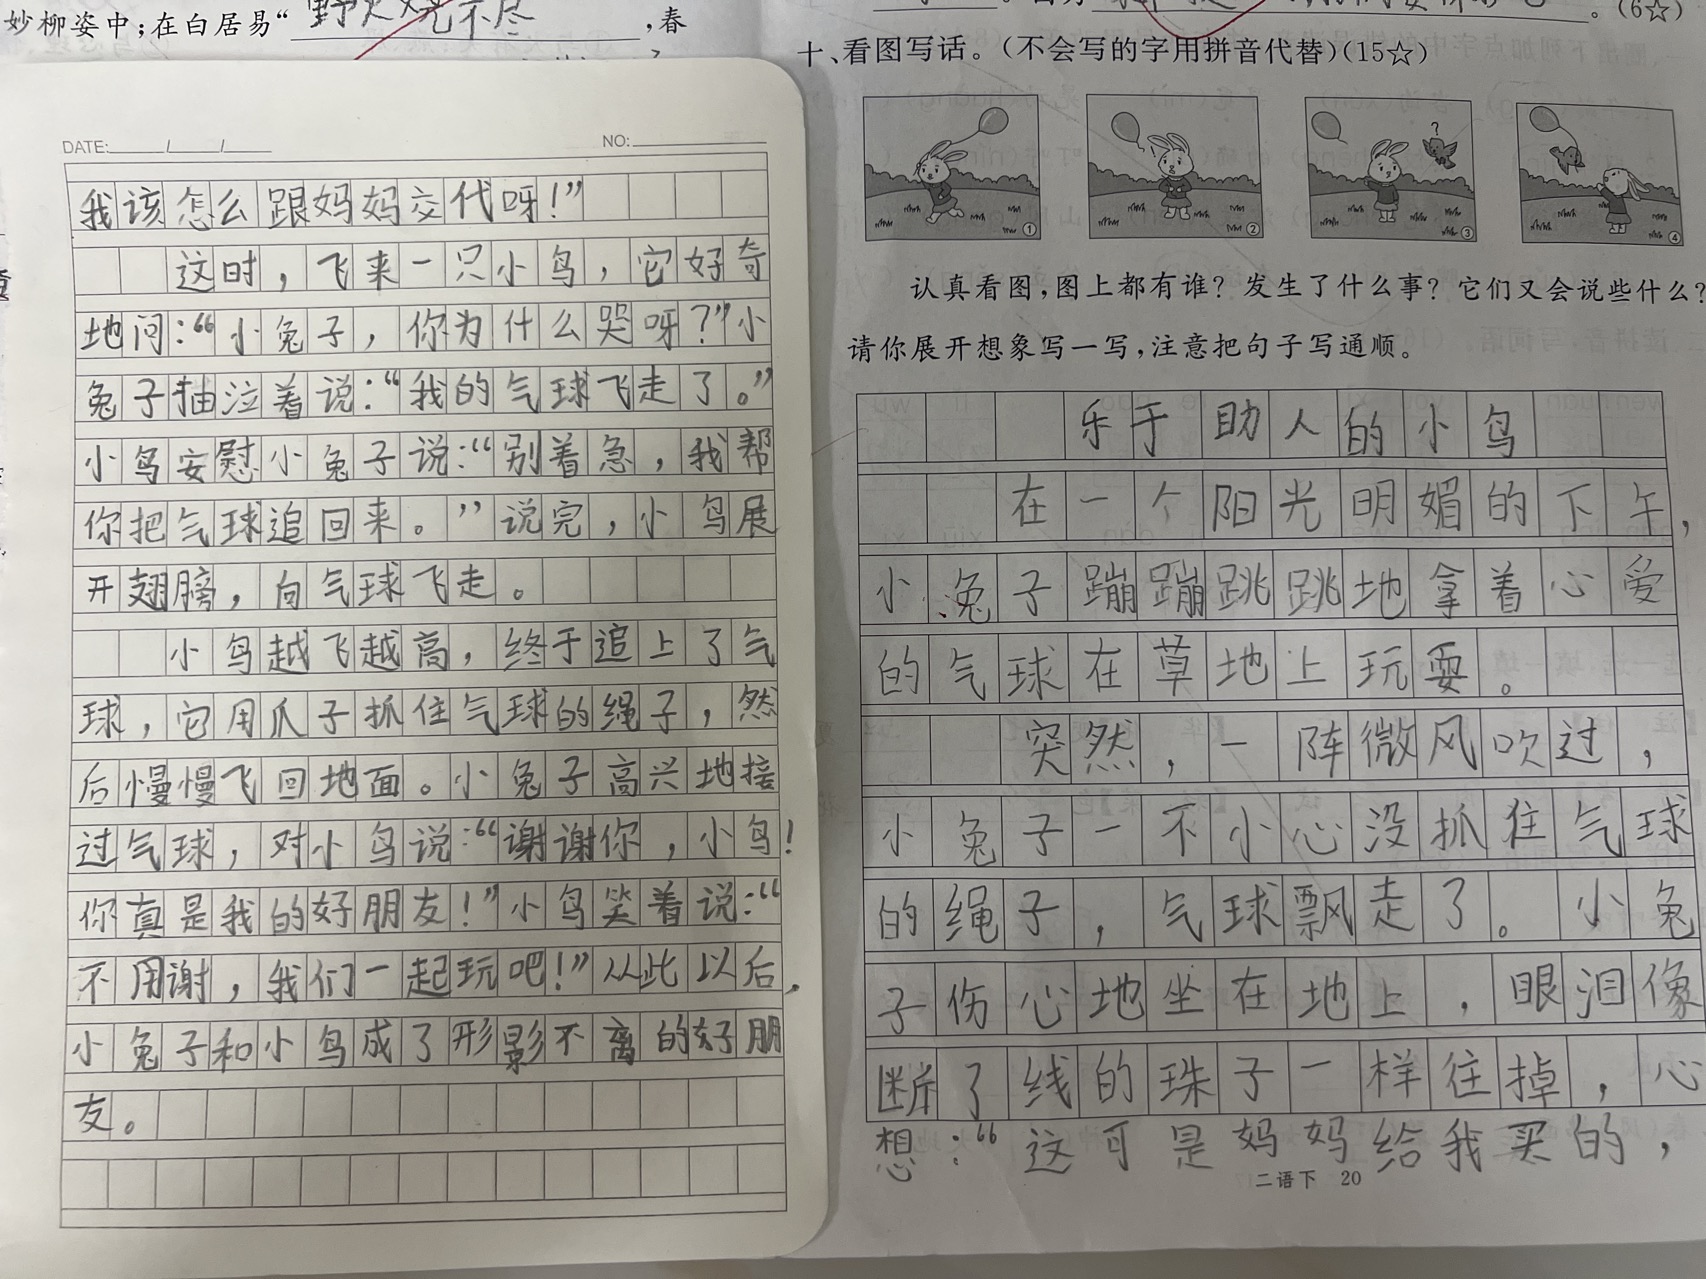 妙柳姿中；在白居易“野火烧不尽，春
十、看图写话。（不会写的字用拼音代替）（15☆）
。（6☆）
①
②
?
③
④
认真看图，图上都有谁？发生了什么事？它们又会说些什么？
请你展开想象写一写，注意把句子写通顺。
乐于助人的小鸟
在一个阳光明媚的下午，
小兔子蹦蹦跳跳地拿着心爱
的气球在草地上玩耍。
突然，一阵微风吹过，
小兔子一不小心没抓住气球
的绳子，气球飘走了。小兔
子伤心地坐在地上，眼泪像
断了线的珠子一样往掉，心
想：“这可是妈妈给我买的，
二语下 20
DATE: / /
NO:
我该怎么跟妈妈交代呀！”
这时，飞来一只小鸟，它好奇
地问：“小兔子，你为什么哭呀？”小
兔子抽泣着说：“我的气球飞走了。”
小鸟安慰小兔子说：“别着急，我帮
你把气球追回来。”说完，小鸟展
开翅膀，向气球飞走。
小鸟越飞越高，终于追上了气
球，它用爪子抓住气球的绳子，然
后慢慢飞回地面。小兔子高兴地接
过气球，对小鸟说：“谢谢你，小鸟！
你真是我的好朋友！”小鸟笑着说：“
不用谢，我们一起玩吧！”从此以后，
小兔子和小鸟成了形影不离的好朋
友。